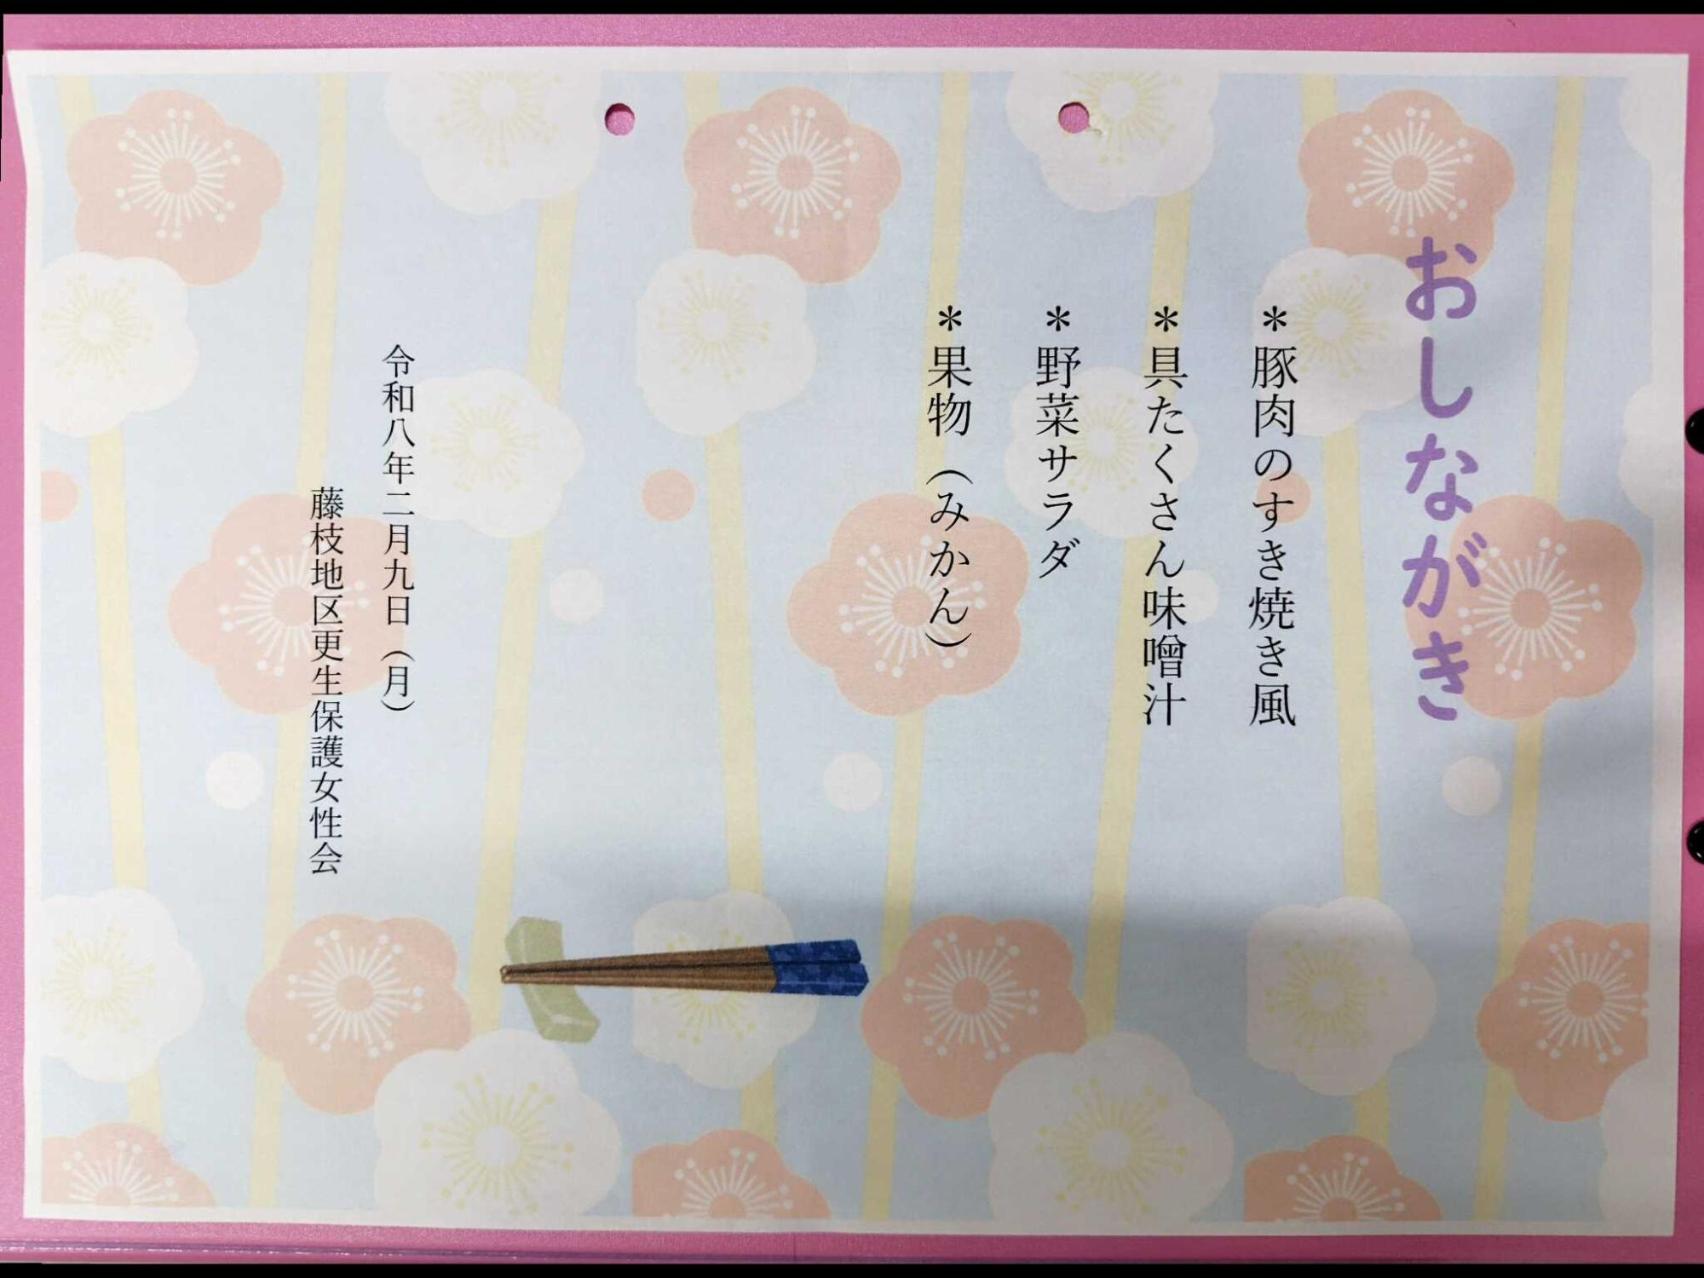 おしながき
＊豚肉のすき焼き風
＊具たくさん味噌汁
＊野菜サラダ
＊果物（みかん）
令和八年二月九日（月）
藤枝地区更生保護女性会